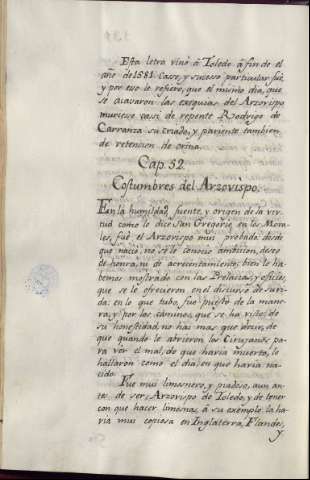 Esta letra vino â Toledo â fin de el
año de 1581. Caso, y sucesso particular fue,
y por eso le refiero, que el mismo dia, que
se acavaron las exequias del Arzovispo
muriesse casi de repente Rodrigo de
Carranza su criado, y pariente tambien
de retencion de orina.
Cap. 32.
Costumbres del Arzovispo.
En la humildad, fuente, y origen de la vir-
tud como lo dice San Gregorio en los Mora-
les, fuê el Arzovispo mui probado, desde
que naciô, no se le conocio ambicion, deseo
de honra, ni de acrecentamiento; bien lo ha-
bemos mostrado con las Prelacias, y oficios,
que se le ofrecieron en el discurso de su vi-
da: en lo que tubo, fue puesto de la mane-
ra, y por los caminos, que se ha visto; de
su honestidad, no hai mas que decir, de
que quando le abrieron los Cirujanos pa-
ra ver el mal, de que havia muerto, le
hallaron como el dia, en que havia na-
cido.
Fue mui limosnero, y piadoso, aun an-
tes de ser Arzovispo de Toledo, y de tener
con que hacer limosnas, â su exemplo la ha-
via mui copiosa en Inglaterra, Flandes,
y